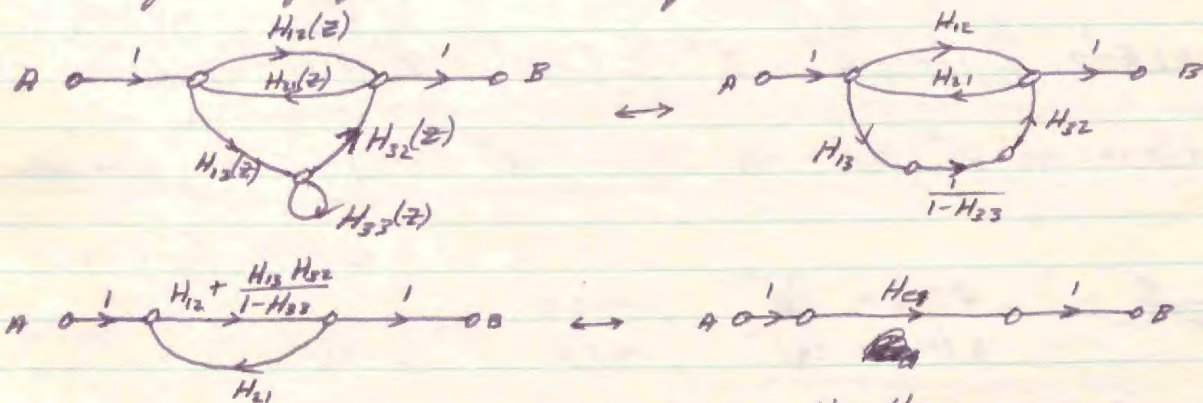 H₁₂(z)
A 1 H₂₁(z) 1 B
H₁₃(z) H₃₂(z)
H₃₃(z)
H₁₂
A 1 H₂₁ 1 B
H₁₃ H₃₂
1/(1-H₃₃)
H₁₂ + H₁₃ H₃₂/(1-H₃₃)
A 1 1 B
H₂₁
A 1 Heq 1 B